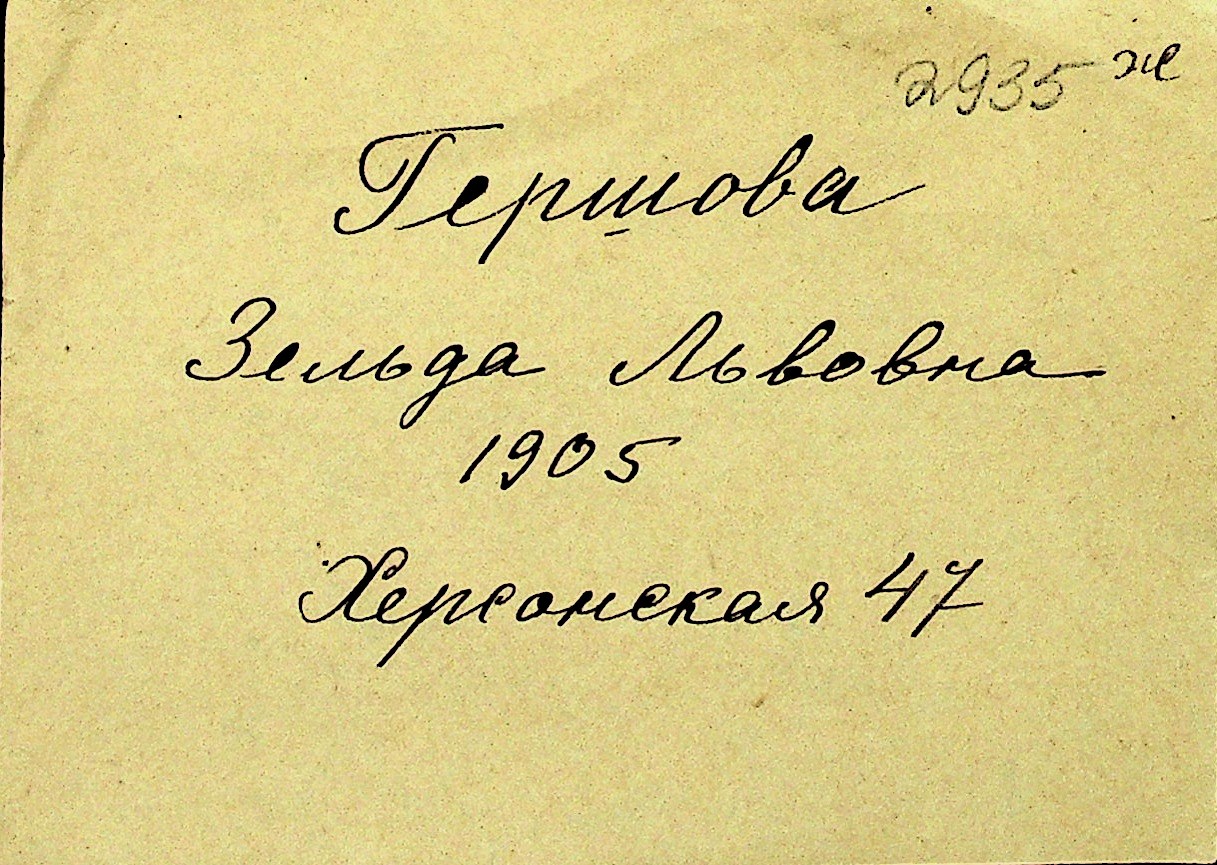 2935 ж
Гершова
Зельда Львовна
1905
Херсонская 47